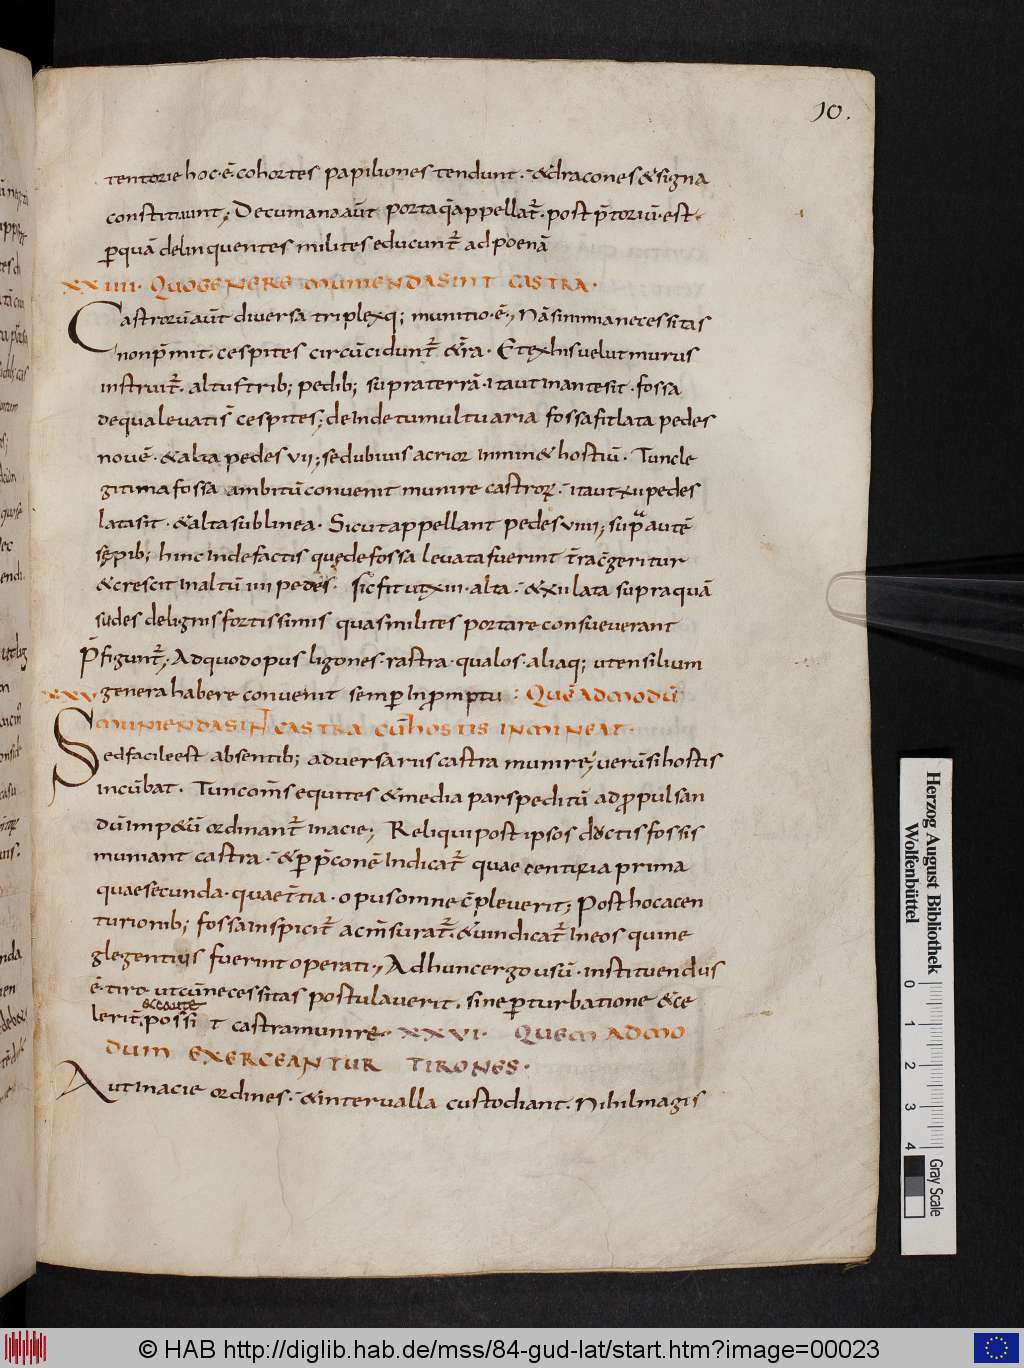 10.
tentorie hoc·ē·cohortes papiliones tendunt·&dracones&signa
constituunt; Decumana aūt porta q̄appellat̄·post p̄toriū·est·
ꝑquā delinquentes milites educunt̄ ad poenā
XXIIII· QUO GENERE MUNIENDA SINT CASTRA·
Castrorū aūt diversa triplexq; munitio·ē·, Nā si nimia necessitas
non p̄mit, cespites circūcidunt̄ &t̄ra· Et ex his velut murus
instruit̄· altus trib; pedib; supra terrā· ita ut in ante sit·fossa
de qua levati s̄ cespites; deinde tumultuaria fossa fit lata pedes
novē·&alta pedes vii; sed ubi vis acrior inmin& hostiū· Tunc le
gitima fossa ambitū convenit munire castroꝝ· ita ut xii pedes
lata sit·&alta sub linea· Sicut appellant pedes viiii; supra autē
sępib; hinc inde factis quę de fossa levata fuerint t̄ra c̄geritur
&crescit in altū iiii pedes· sic fit ut xiii·alta·&xii lata supra quā
sudes de lignis fortissimis quas milites portare consueverant
P̄figunt̄; Ad quod opus ligones·rastra·qualos·aliaq; utensilium
genera habere convenit semꝑ in promptu : QUĒADMODŪ
XXV
MUNIENDA SINT CASTRA CŪ HOSTIS INMINEAT·
Sed facile est absentib; adversarus castra munire; verū si hostis
incūbat· Tunc om̄s equites &media pars peditū ad propulsan
dū imp&ū ordinant̄ in acie; Reliqui post ipsos ductis fossis
muniant castra·&ꝑ p̄conē indicat̄ quae centuria prima
quae secunda·quae t̄tia·opus omne c̄pleverit; Post hoc a cen
turionib; fossa inspicit̄ ac m̄surat̄·&vindicat̄ in eos qui ne
glegentius fuerint operati·, Ad hunc ergo usū·instituendus
ē·tiro·ut cū necessitas postulaverit·sine ꝑturbatione &ce
&caute
lerit̄·possi t castra munire· XXXVI· QUEM ADMO
DUM EXERCEANTUR TIRONES·
Aut in acie ordines·&intervalla custodiant·Nihil magis
Herzog August Bibliothek
Wolfenbüttel
0 1 2 3 4
Gray Scale
© HAB http://diglib.hab.de/mss/84-gud-lat/start.htm?image=00023